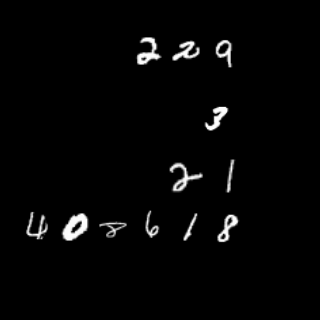 229
3
21
408618